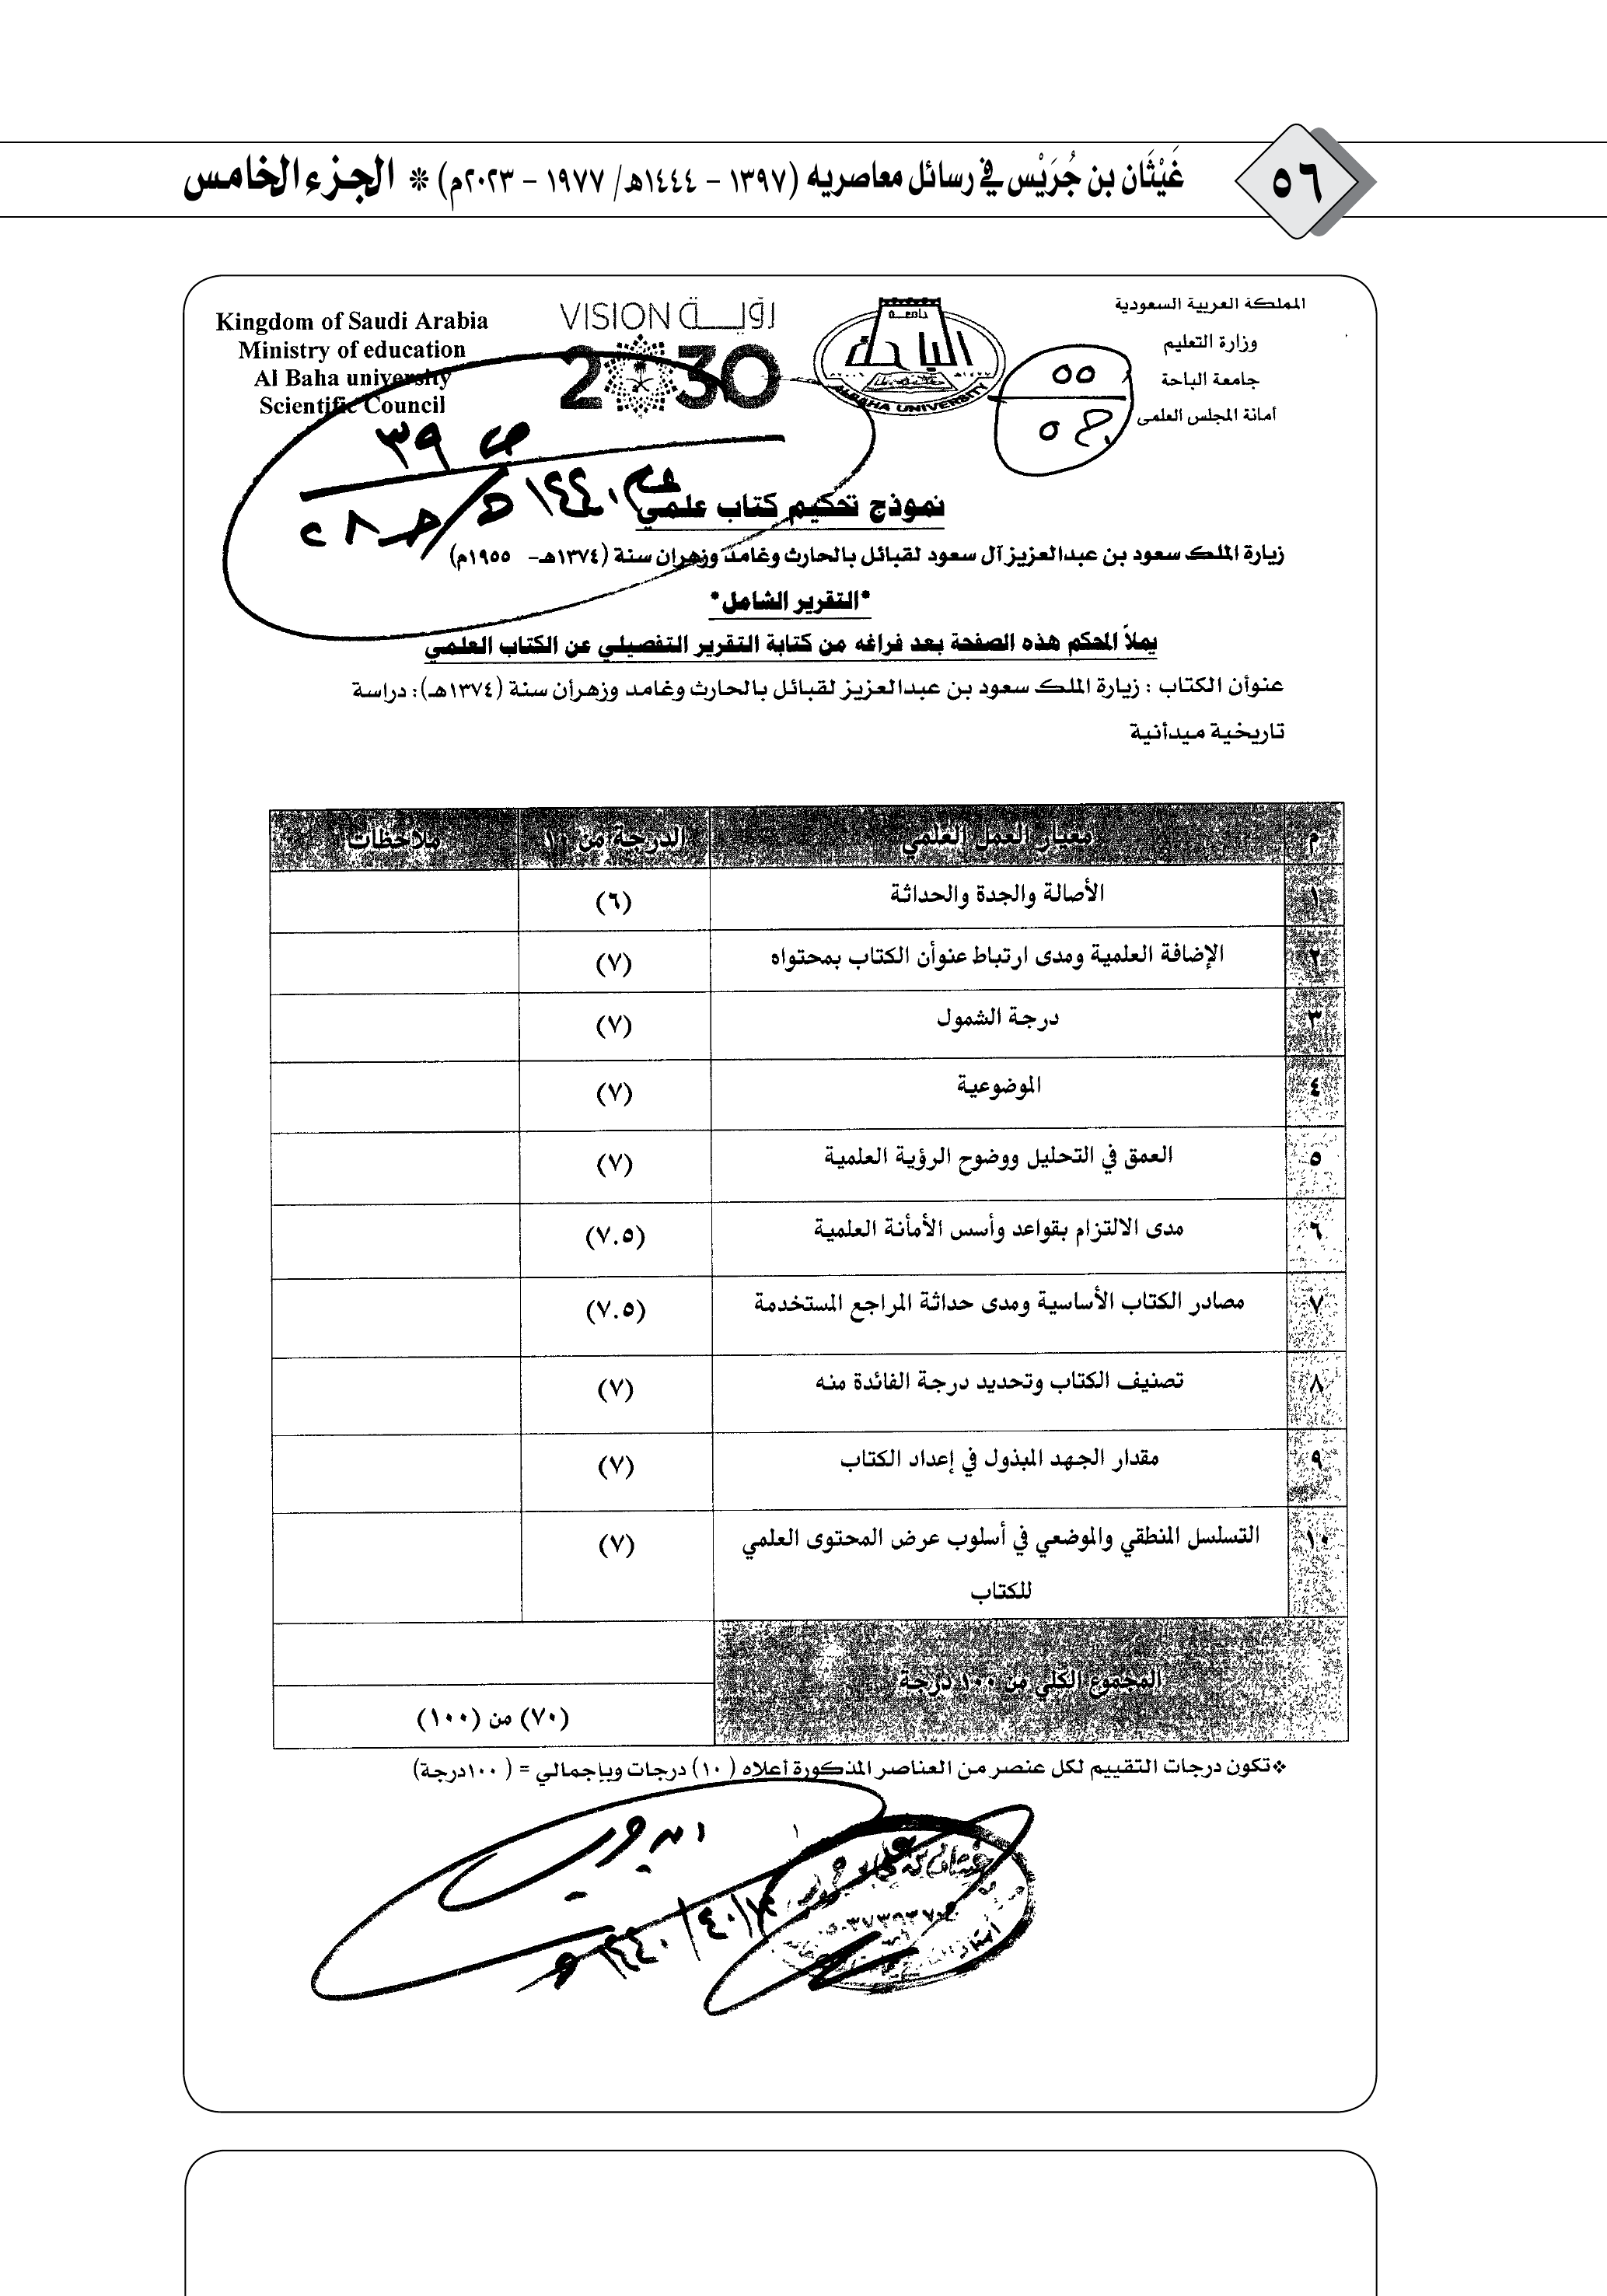 ٥٦
غَيْثَان بن جُرَيْس في رسائل معاصريه (١٣٩٧ – ١٤٤٤هـ/ ١٩٧٧ – ٢٠٢٣م) ❊ الجزء الخامس
المملكة العربية السعودية
وزارة التعليم
جامعة الباحة
أمانة المجلس العلمي
جامعة
الباحة
ALBAHA UNIVERSITY
VISION رؤيـــة
2030
Kingdom of Saudi Arabia
Ministry of education
Al Baha university
Scientific Council
٥٥
ج ٥
ص ٣٩
نموذج تحكيم كتاب علمي
زيارة الملك سعود بن عبدالعزيز آل سعود لقبائل بالحارث وغامد وزهران سنة (١٣٧٤هـ- ١٩٥٥م)
*التقرير الشامل*
يملأ المحكم هذه الصفحة بعد فراغه من كتابة التقرير التفصيلي عن الكتاب العلمي
عنوأن الكتاب : زيارة الملك سعود بن عبدالعزيز لقبائل بالحارث وغامد وزهرأن سنة (١٣٧٤هـ): دراسة
تاريخية ميدأنية
م معيار العمل العلمي الدرجة من ١٠ ملاحظات
١ الأصالة والجدة والحداثة (٦)
٢ الإضافة العلمية ومدى ارتباط عنوأن الكتاب بمحتواه (٧)
٣ درجة الشمول (٧)
٤ الموضوعية (٧)
٥ العمق في التحليل ووضوح الرؤية العلمية (٧)
٦ مدى الالتزام بقواعد وأسس الأمأنة العلمية (٧.٥)
٧ مصادر الكتاب الأساسية ومدى حداثة المراجع المستخدمة (٧.٥)
٨ تصنيف الكتاب وتحديد درجة الفائدة منه (٧)
٩ مقدار الجهد المبذول في إعداد الكتاب (٧)
١٠ التسلسل المنطقي والموضعي في أسلوب عرض المحتوى العلمي (٧)
للكتاب
المجموع الكلي من ١٠٠ درجة
(٧٠) من (١٠٠)
❖تكون درجات التقييم لكل عنصر من العناصر المذكورة أعلاه (١٠) درجات وبإجمالي = (١٠٠درجة)
١